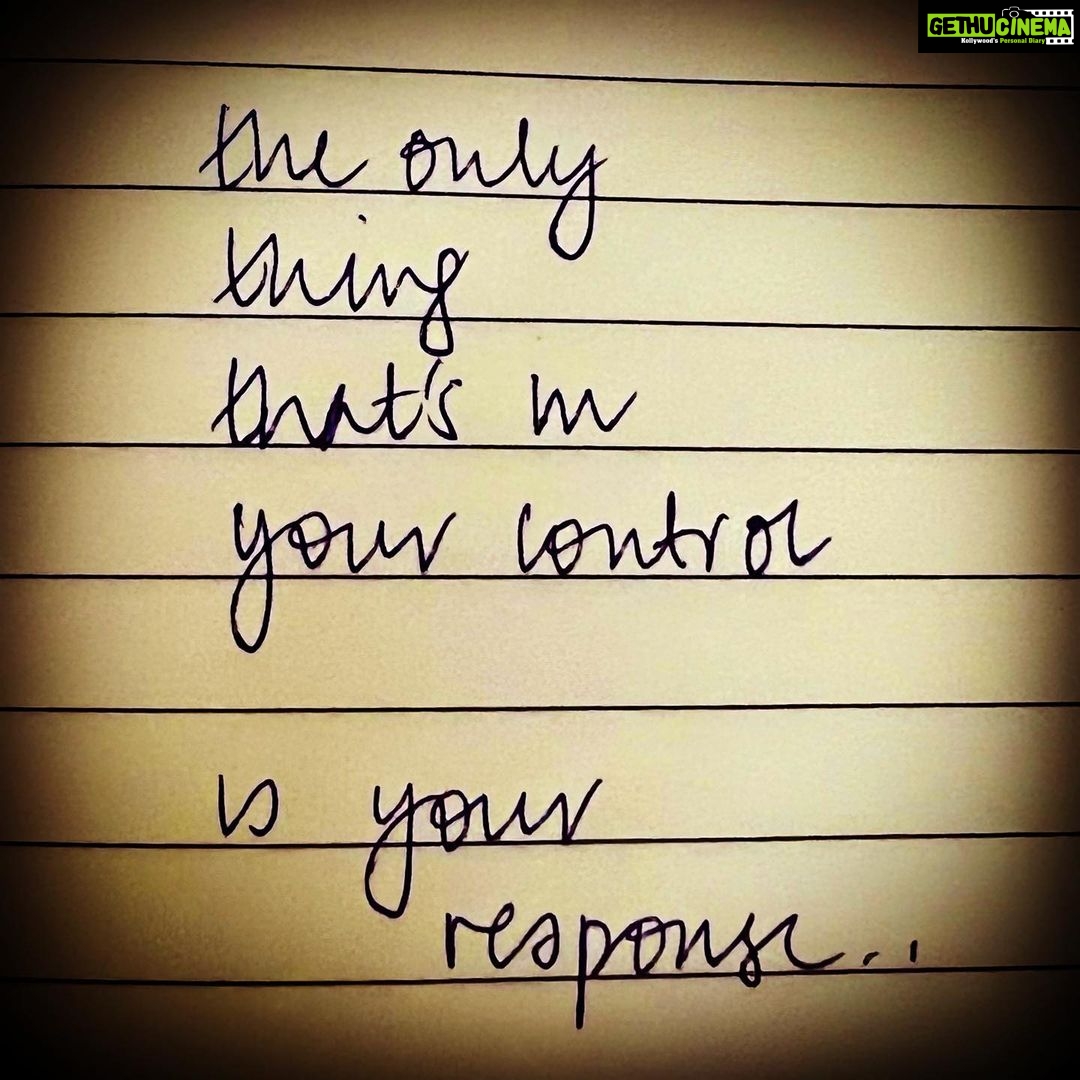 GETHUCINEMA
Kollywood's Personal Diary
the only
thing
that's in
your control
is your
response...